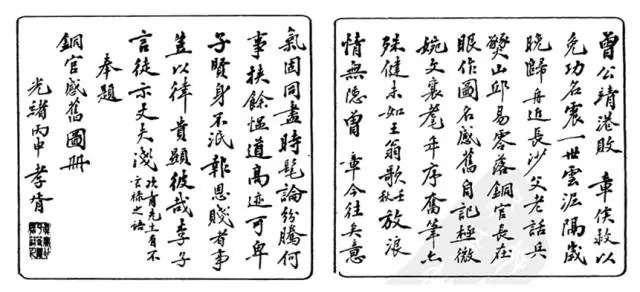 曾公靖港敗　章侯救以
免功名震一世雲泥隔歲
晚歸舟近長沙父老話兵
燹山邱易零落銅官長在
眼作圖名感舊自記極微
婉文襄耄年序奮筆亦
殊健未如王翁歌壬秋放浪
情無隱曾　章今往矣意
氣固同盡時髦論紛騰何
事扶餘愠道高迹可卑
子賢身不泯報恩賤者事
豈以律貴顯彼哉李子
言徒示丈夫淺次青先生有不言祿之語
奉題
銅官感舊圖冊
光緒丙申　孝胥